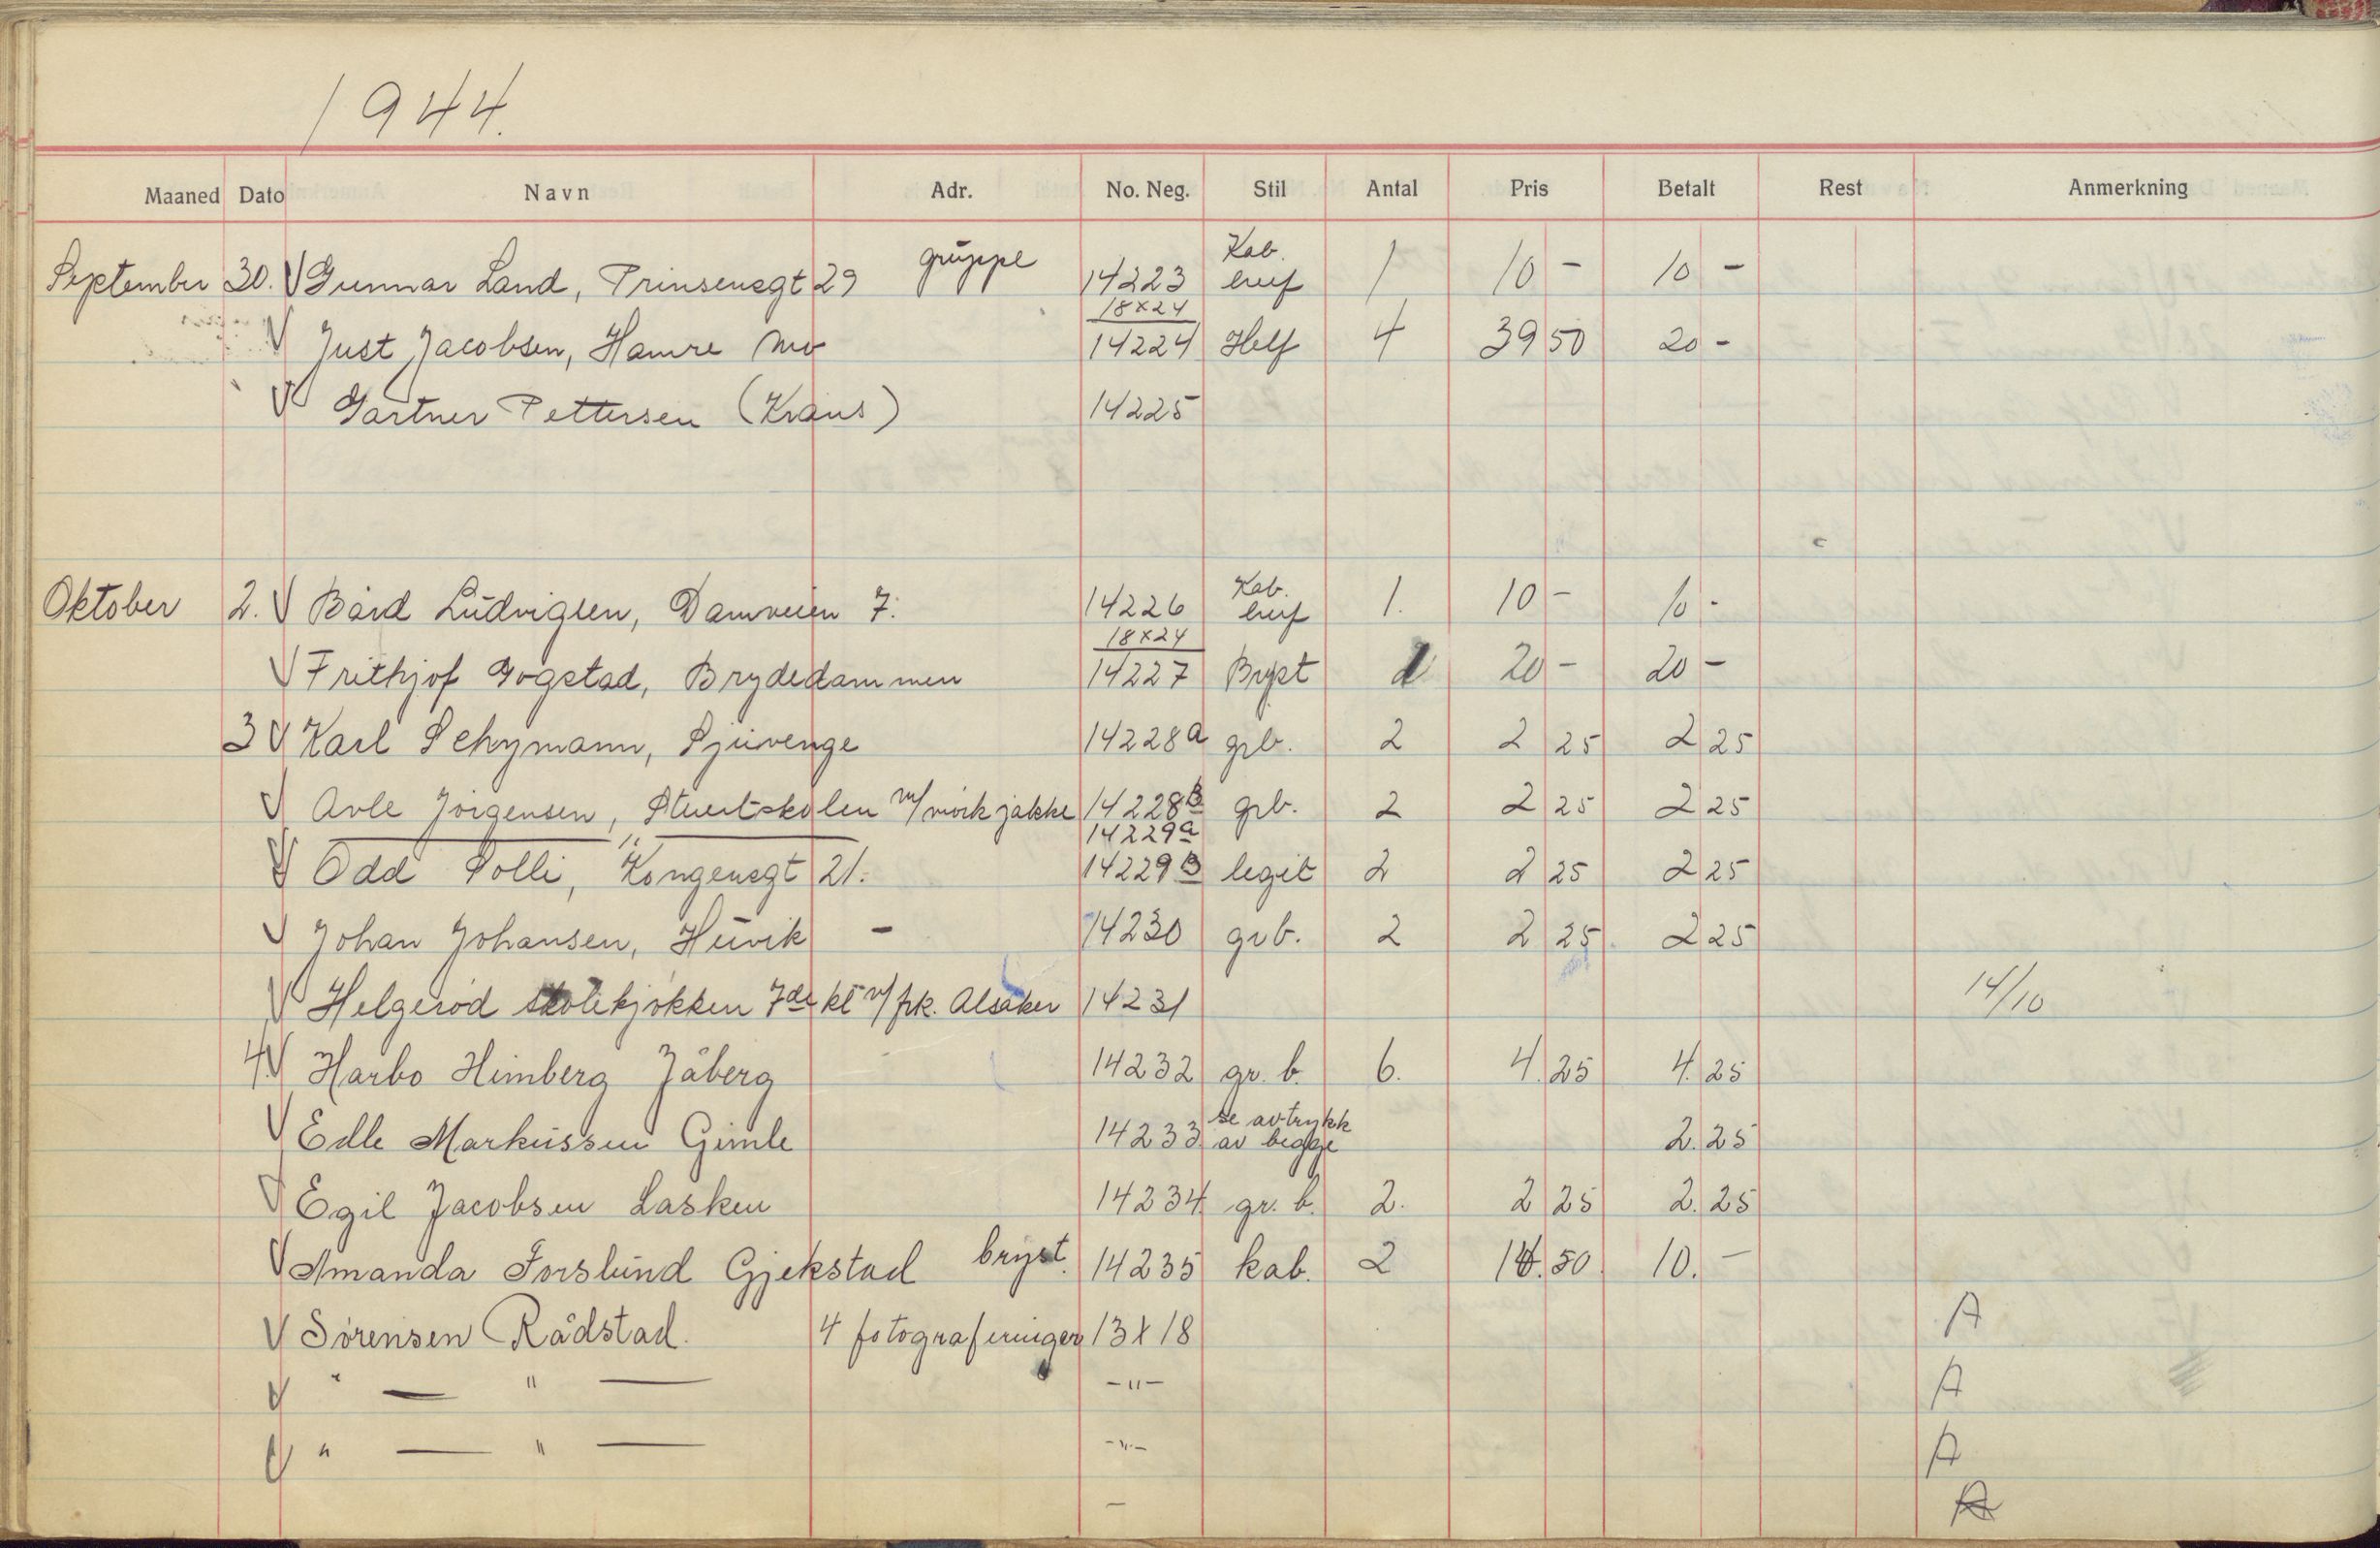 1944.
Maaned Dato Navn Adr. No. Neg. Stil Antal Pris Betalt Rest Anmerkning
September 30. V Gunnar Land, Prinsensgt 29 gruppe 14223 Kab. 1 10 - 10 -
18x24
V Just Jacobsen, Hamre Mo 14224 Helf 4 39 50 20 -
V Gartner Pettersen (Krans) 14225
Oktober 2. V Bård Ludvigsen, Damveien 7. 14226 Kab. 1. 10 - 10 -
18x24
V Frithjof Gogstad, Brydedammen 14227 Bryst 20 - 20 -
3 V Karl Schymann, Sjuvenge 14228a grb. 2 2 25 2 25
V Arle Jörgensen, Stuertskolen m/mörk jakke 14228B grb. 2 2 25 2 25
14229a
V Odd Solli, Kongensgt 21. 14229B legit 2 2 25 2 25
V Johan Johansen, Huvik - 14230 grb. 2 2 25 2 25
V Helgeröd skolekjökken 7de kl v/frk. Alsaker 14231 14/10
4. V Harbo Himberg Jåberg 14232 gr. b. 6. 4. 25 4. 25
V Edle Markussen Gimle 14233 se avtrykk av begge 2. 25
V Egil Jacobsen Lasken 14234 gr. b. 2. 2 25 2. 25
V Amanda Forslund Gjekstad bryst. 14235 kab. 2 50 10. -
V Sörensen Rådstad. 4 fotograferinger 13x18 A
V " — " — -"- A
V " — " — -"- A
- A